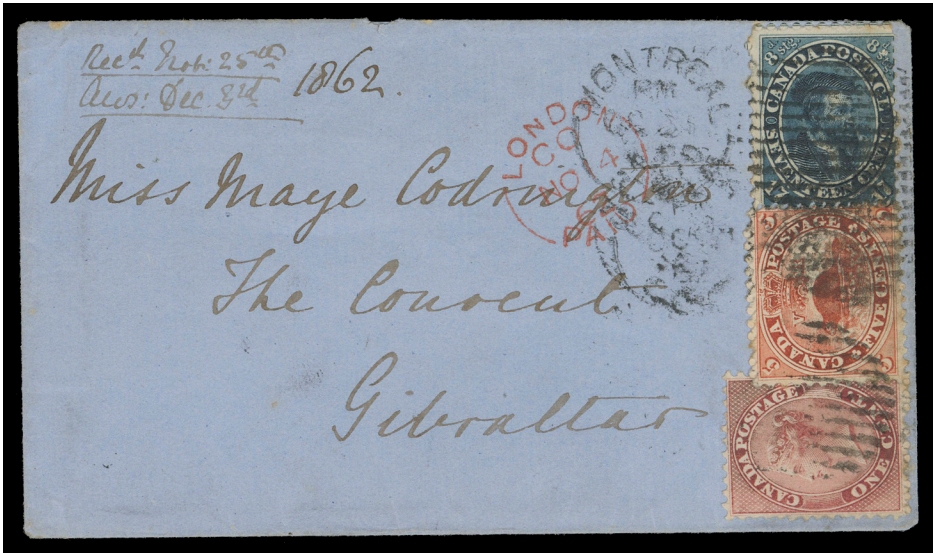 Recd Nob: 25th
Ans: Dec 3rd
1862.
Miss Maye Codrington
The Convent
Gibraltar
LONDON
CO
NO 4
62
PAID
MONTREAL
PM
CANADA POSTAGE
SEVENTEEN CENTS
8d stg
CANADA POSTAGE
FIVE CENTS
5
5
CANADA POSTAGE
ONE CENT